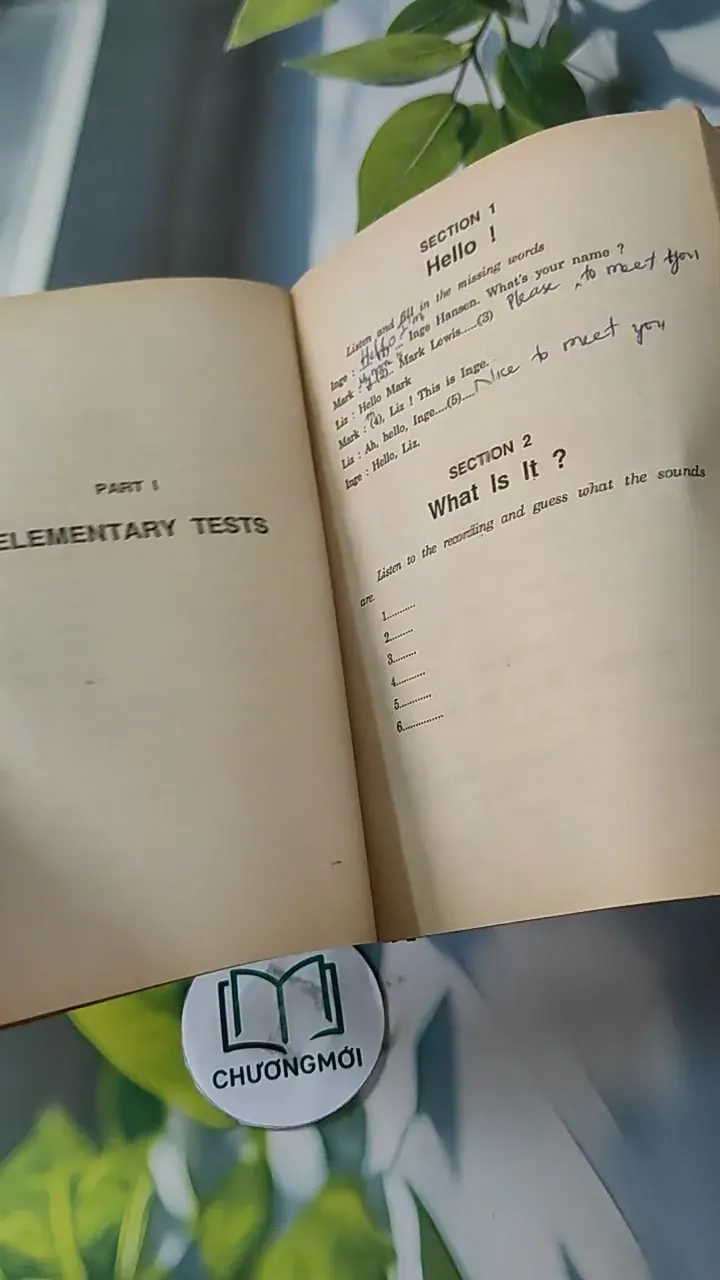 PART I
ELEMENTARY TESTS
SECTION 1
Hello !
Listen and fill in the missing words
Inge : Hello I'm Inge Hansen. What's your name ?
Mark : My name is ..(2).. Mark Lewis.....(3) Please to meet you
Liz : Hello Mark
Mark : (4), Liz ! This is Inge.
Liz : Ah, hello, Inge....(5).... Nice to meet you
Inge : Hello, Liz.
SECTION 2
What Is It ?
Listen to the recording and guess what the sounds
are.
1..........
2........
3........
4..........
5...........
6..............
CHƯƠNGMỚI